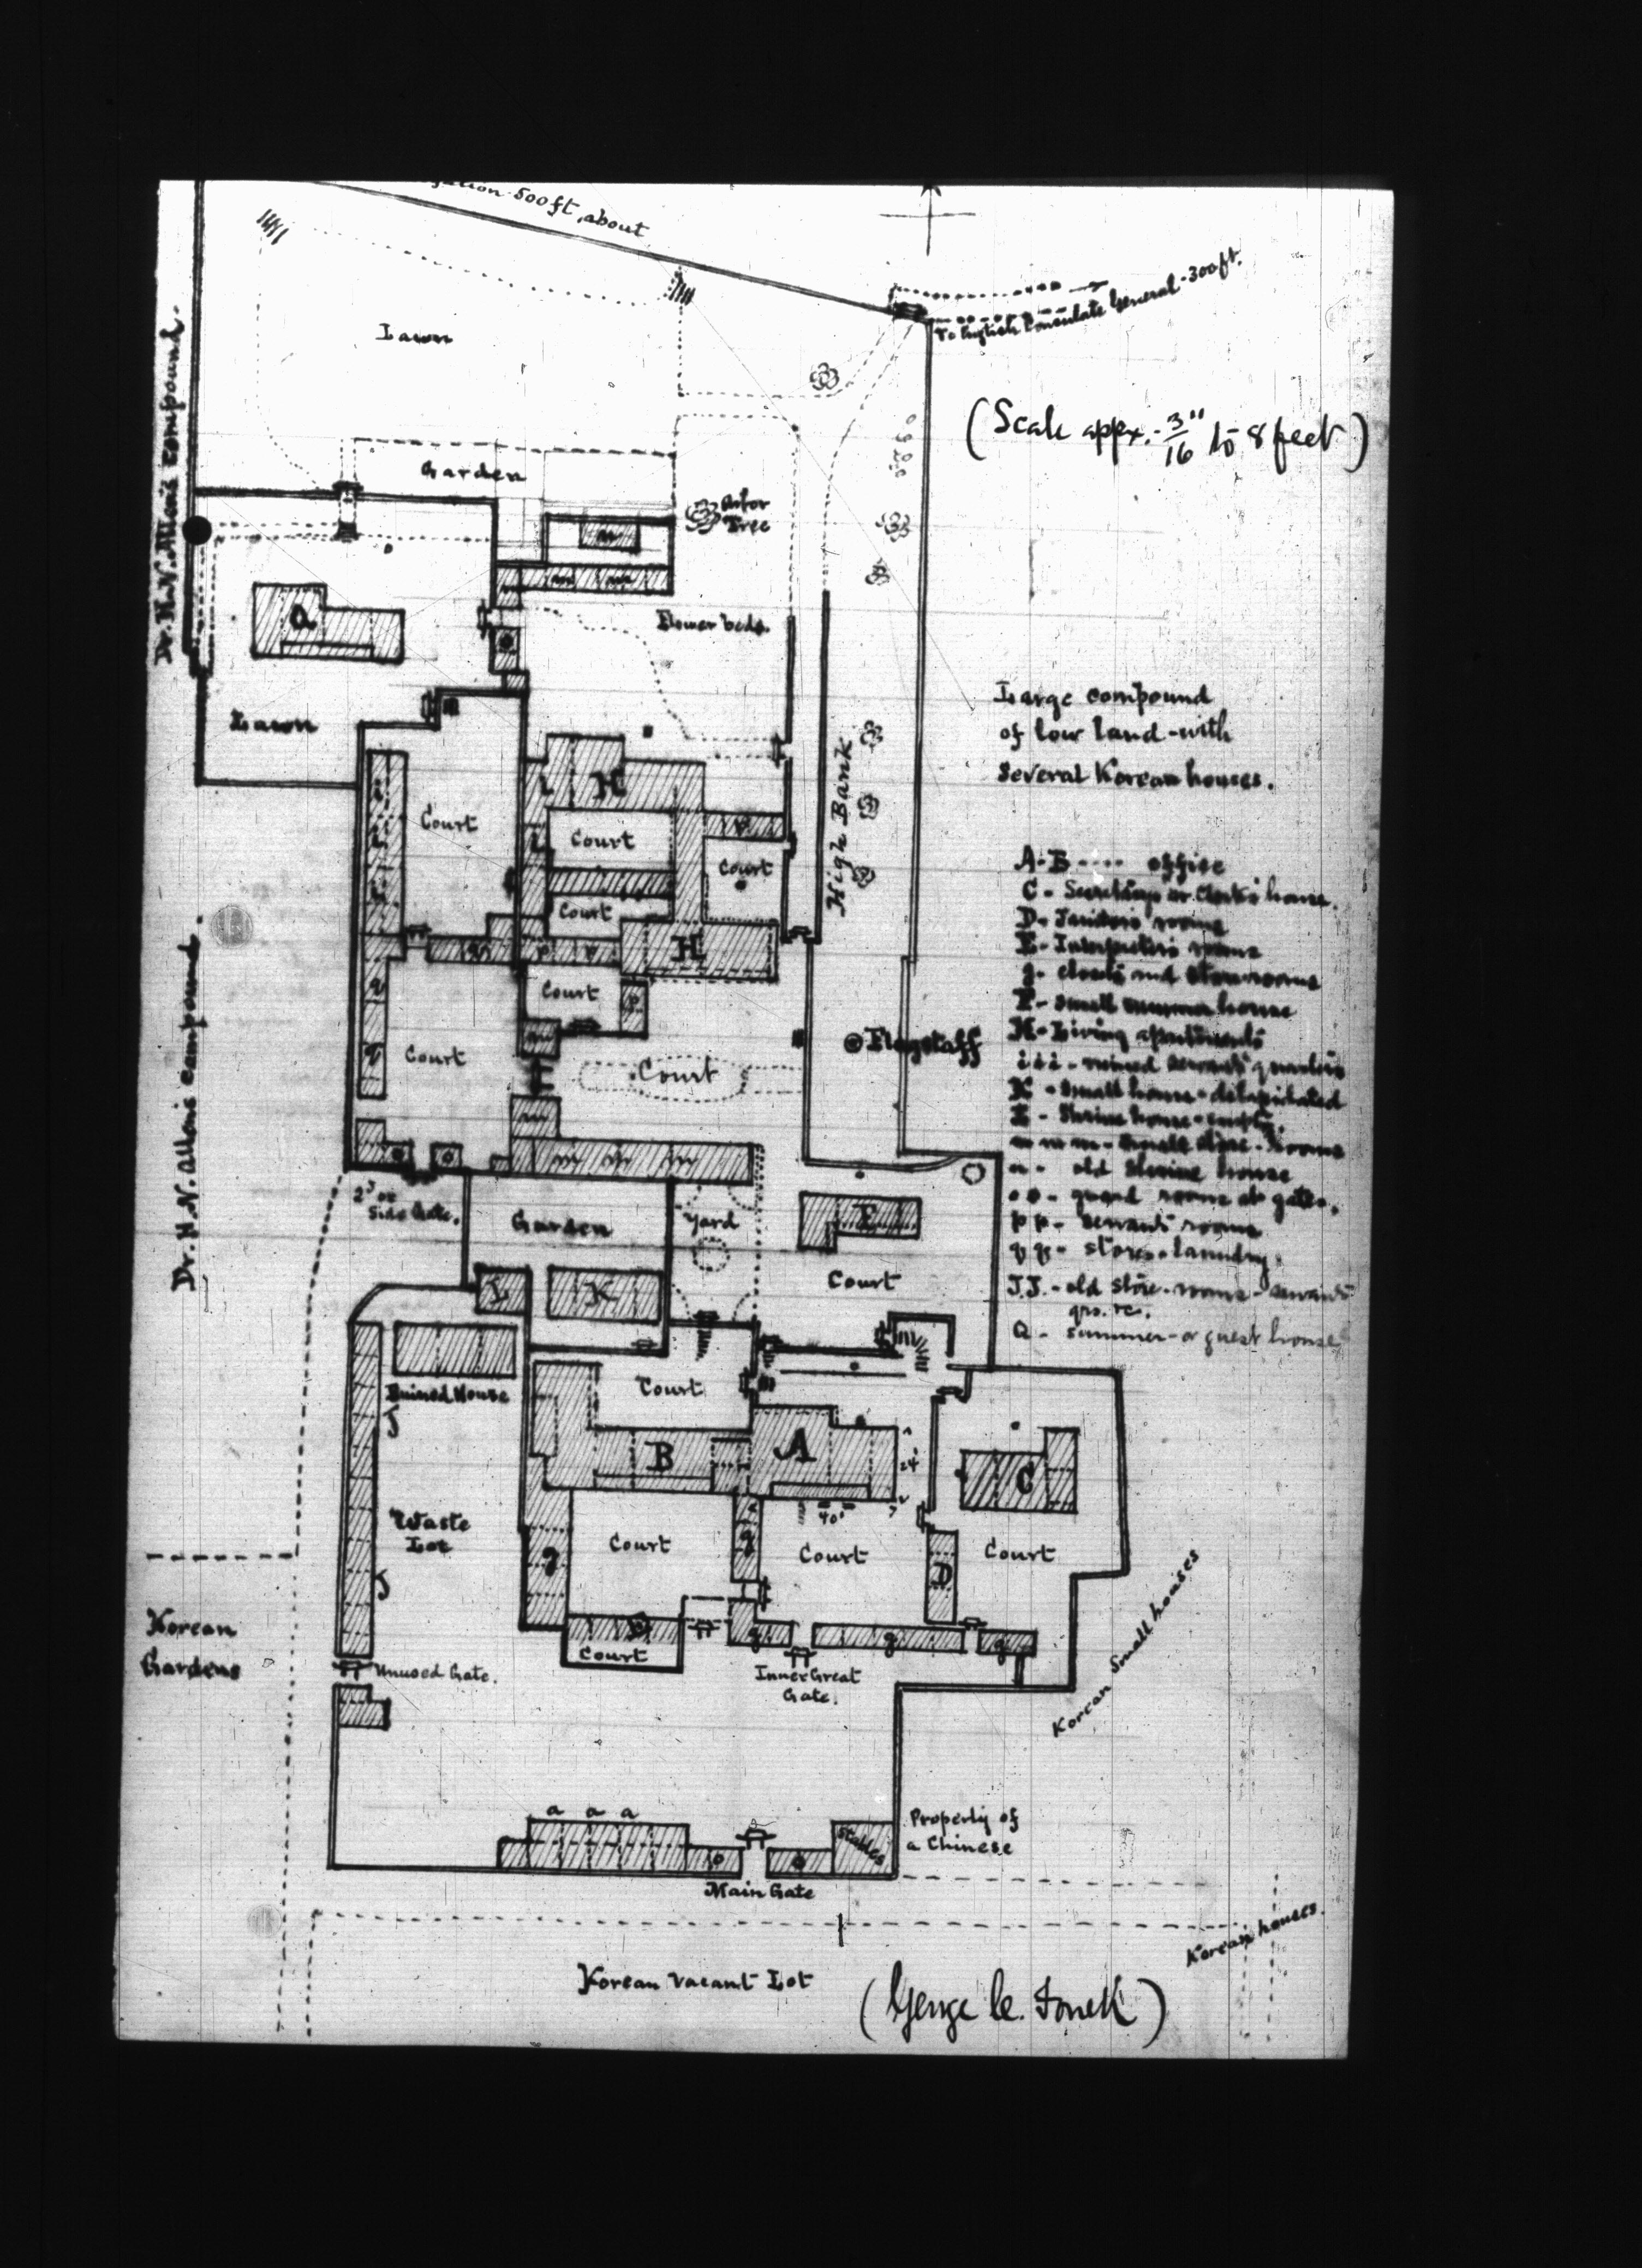 500ft, about
To English Consulate General - 300ft.
Lawn
Dr. H.N. Allen's compound.
(Scale appx. - 3/16" to 8 feet)
Garden
Arbor
Tree
n
m m
Q
o
Flower beds.
Lawn
Large compound
of low land - with
several Korean houses.
High Bank
H
i
i
i
Court
Court
P
Court
Court
H
Court
q
q
Court
Court
Flagstaff
A-B ---- office
C - Secretary's or Clerk's house.
D - Janitor's rooms
E - Interpreter's rooms
g - closets and store-rooms
F - Small summer house
H - Living apartments
i i i - ruined servants' quarters
K - Small house - delapidated
L - Shrine house - empty.
m m m - Small store-rooms
n - old Shrine house
o o - guard rooms at gates.
p p - servants' rooms
q q - stores & laundry.
J.J. - old store-rooms - servants'
qrs. &c.
Q - summer - or guest house
m
m m m
o o
Dr. H.N. Allen's compound.
Side Gate.
Garden
Yard
F
Court
L
K
Ruined House
J
Court
B
A
24'
40'
C
Waste
Lot
J
g
Court
g
Court
D
Court
Korean
Gardens
Unused Gate.
Court
g
g
g
Inner Great
Gate.
Korean Small houses
a a a
o
o
Stables
Property of
a Chinese
Main Gate
Korean houses.
Korean Vacant Lot